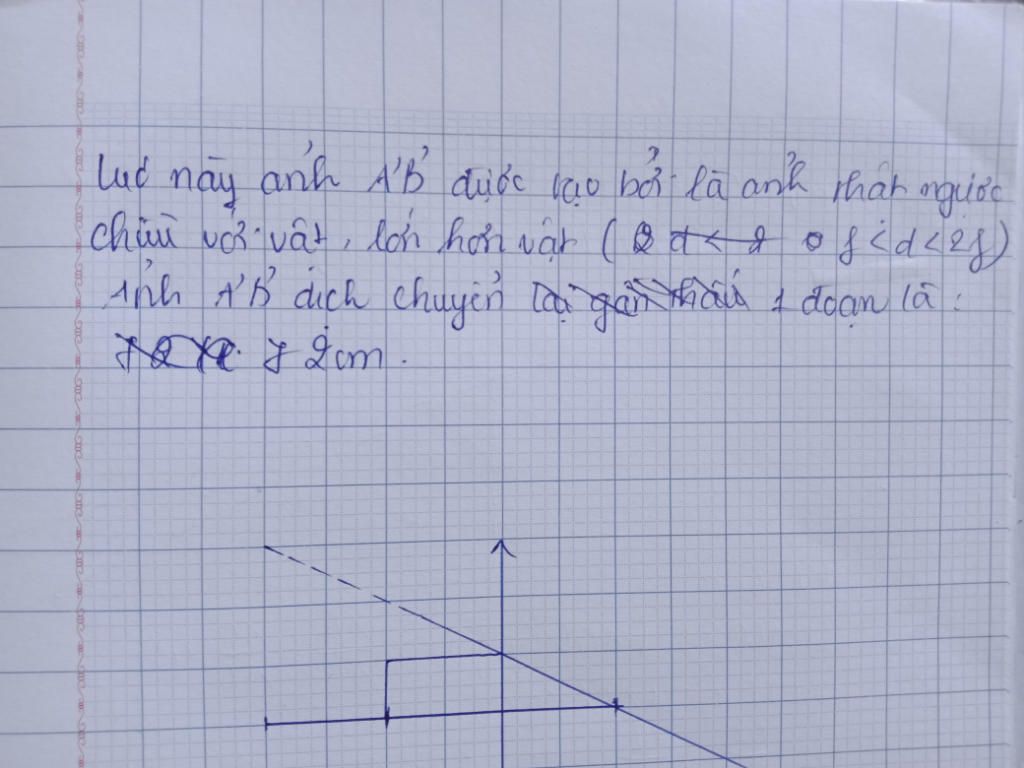 lúc này ảnh A'B' được tạo bởi là ảnh thật ngược
chiều với vật, lớn hơn vật ( f < d < 2f )
ảnh A'B' dịch chuyển 1 đoạn là :
2cm .